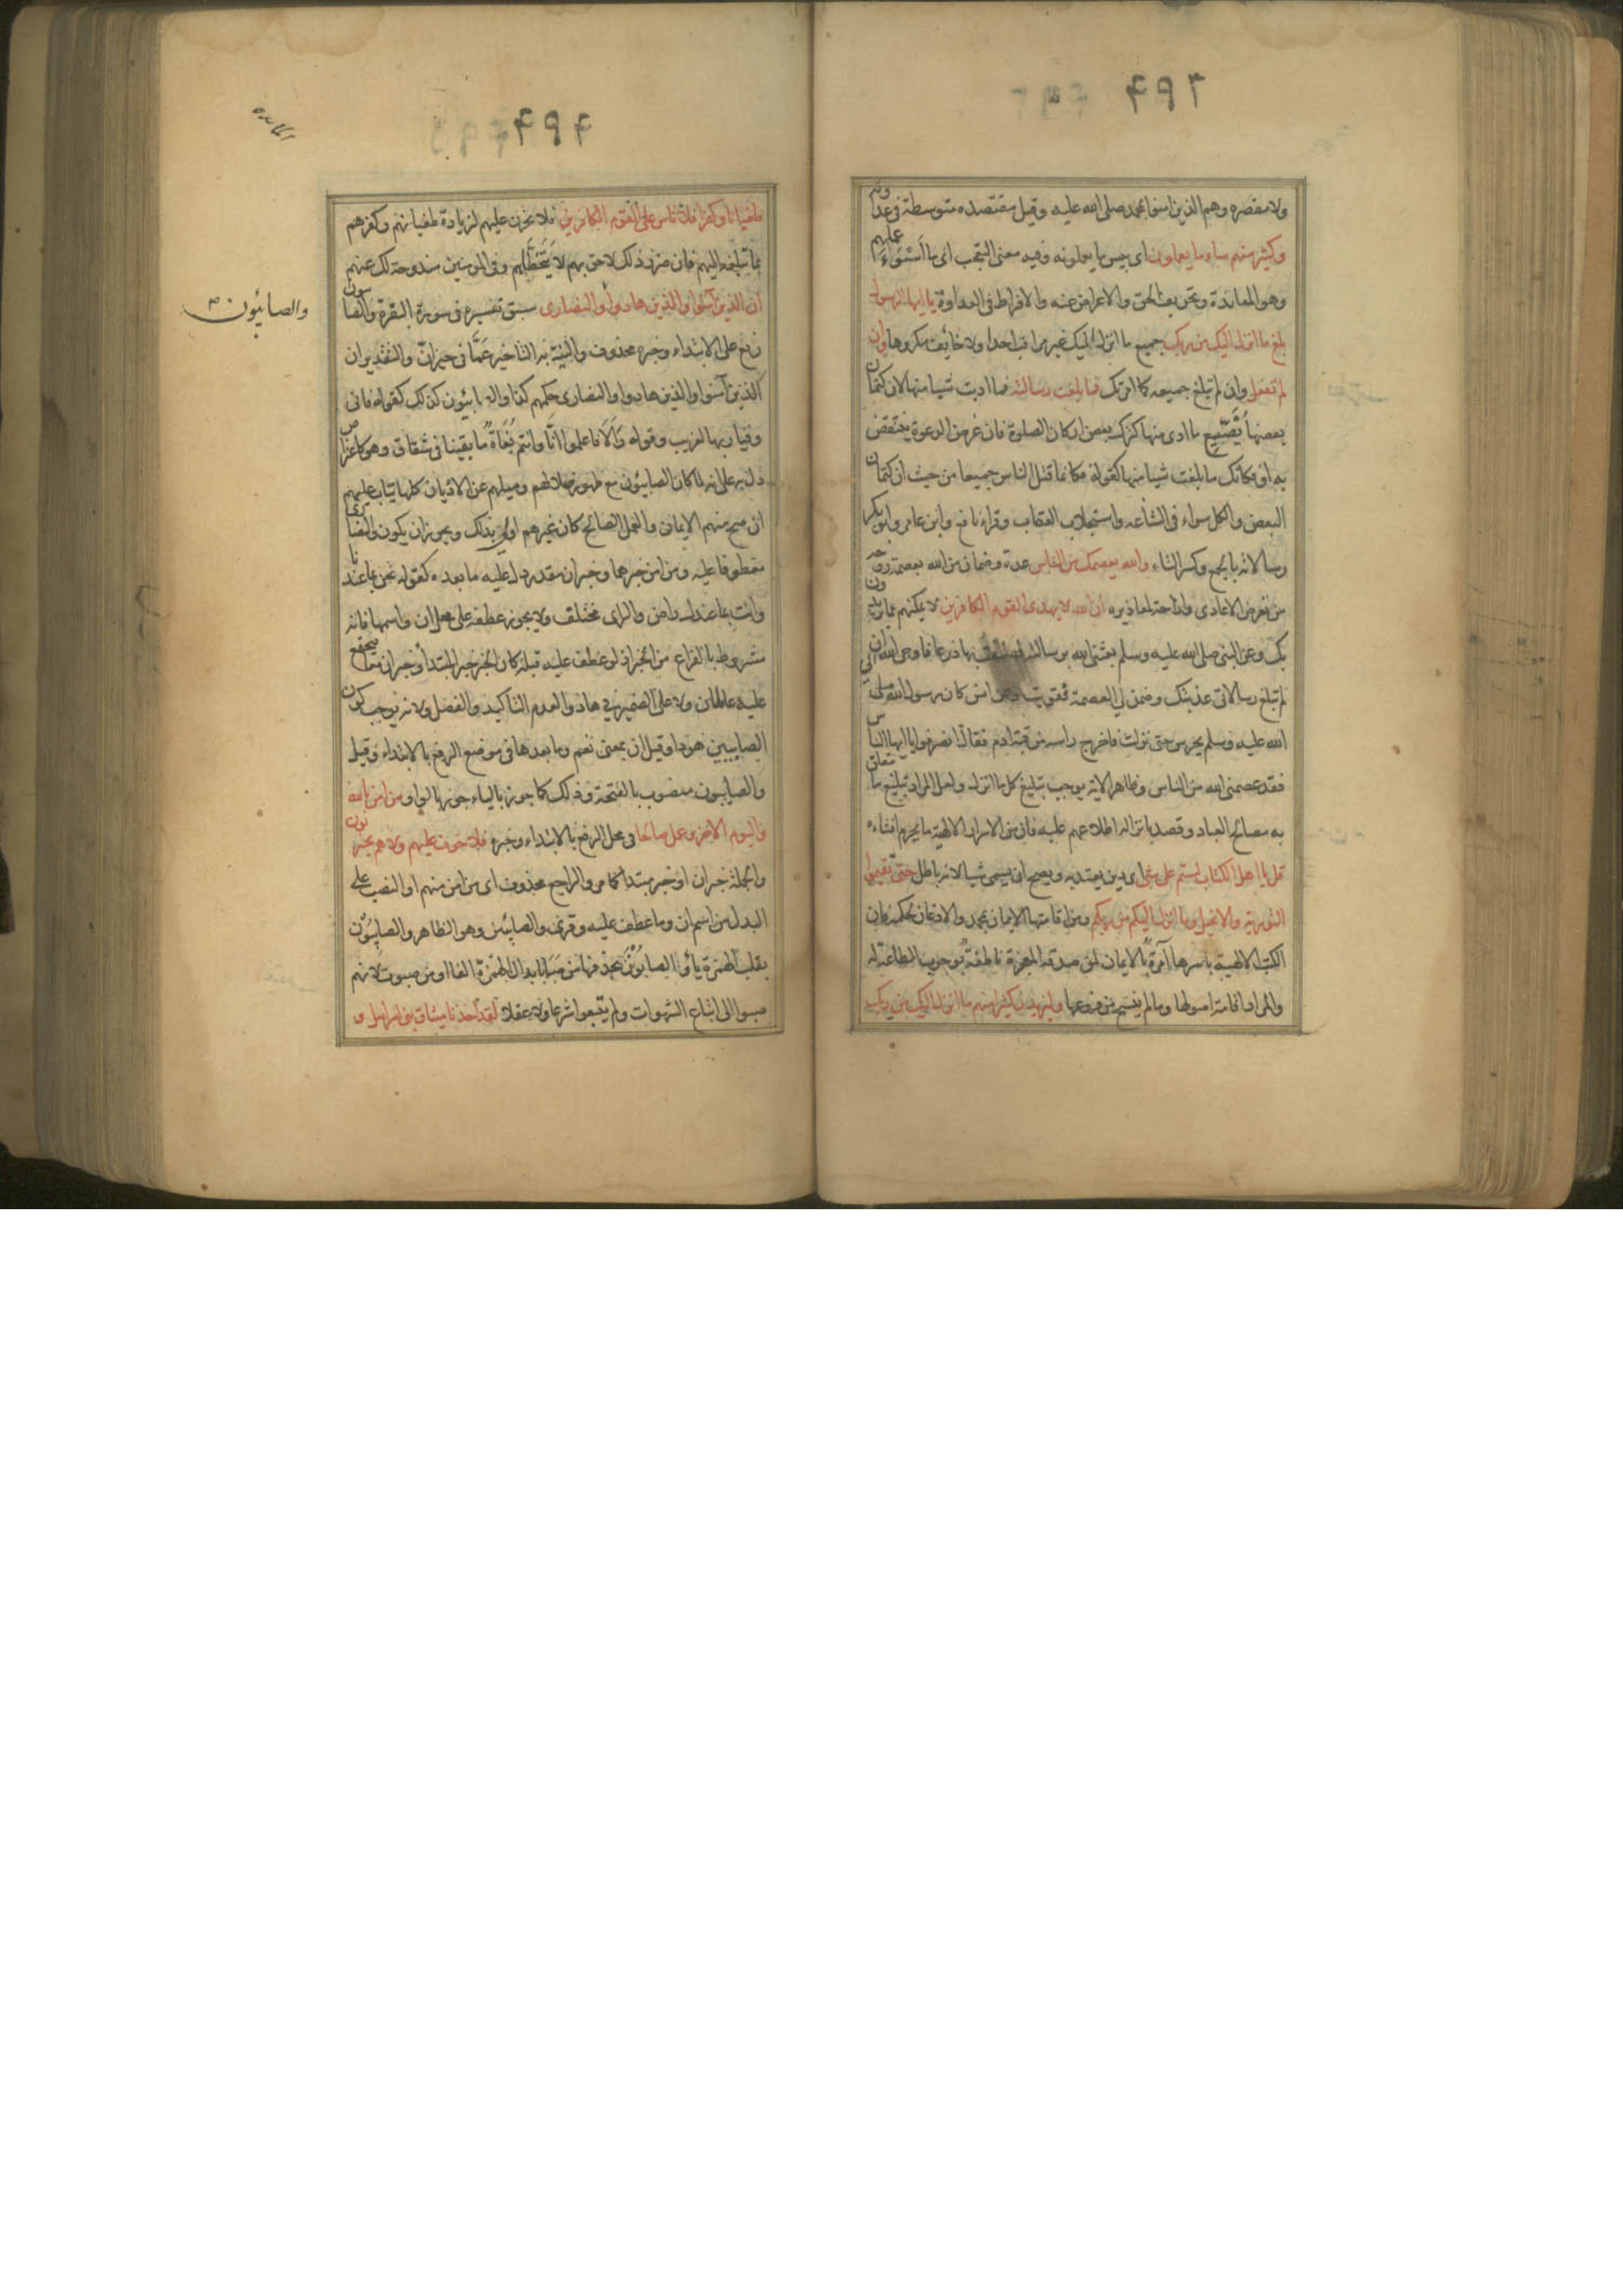 ولا مقصره وهم الذين امنوا بمحمد صلى الله عليه وقيل مقتصده متوسطة في عداوته
وكثير منهم ساء ما يعملون اى بيس ما يعملونه وفيه معنى التعجب اى ما اسوء عملهم
وهو المعاندة وتحريف الحق والاعراض عنه والافراط في العداوة يا ايها الرسول
بلغ ما انزل اليك من ربك جميع ما انزل اليك غير مراقب احدا ولا خائف مكروها وان
لم تفعل وان لم تبلغ جميعه كما امرتك فما بلغت رسالته فما اديت شيا منها لان كتمان
بعضها يُضَيِّع ما ادى منها كترك بعض اركان الصلوة فان غرض الدعوة ينتقض
به او فكانك ما بلغت شيا منها كقوله فكانما قتل الناس جميعا من حيث ان كتمان
البعض والكل سواء في الشناعه واستجلاب العقاب وقراء نافع وابن عامر وابو بكر
رسالاته بالجمع وكسر التاء والله يعصمك من الناس عدة وضمان من الله بعصمة روحه
من تعرض الاعادى وازاحة لمعاذيره ان الله لا يهدى القوم الكافرين لا يمكنهم مما يريدون
بك وعن النبي صلى الله عليه وسلم بعثنى الله برسالته فضقت بها ذرعا فاوحى الله الى ان
لم تبلغ رسالاتى عذبتك وضمن لي العصمة فقويت وعن انس كان رسول الله صلى
الله عليه وسلم يحرس حتى نزلت فاخرج راسه من قبة ادم فقال انصرفوا يا ايها الناس
فقد عصمنى الله من الناس وظاهر الاية يوجب تبليغ كل ما انزل ولعل المراد تبليغ ما تتعلق
به مصالح العباد وقصد بانزاله اطلاعهم عليه فان من الاسرار الالهية ما يحرم افشاءه
قل يا اهل الكتاب لستم على شئ اى دين يعتد به ويصح ان يسمى شيا لانه باطل حتى تقيموا
التورية والانجيل وما انزل اليكم من ربكم ومن اقامتها الايمان بمحمد والاذعان لحكمه فان
الكتب الالهية باسرها آمرة بالايمان لمن صدقه المعجزة ناطقة بوجوب الطاعة له
والمراد اقامة اصولها وما لم ينسخ من فروعها وليزيدن كثيرا منهم ما انزل اليك من ربك
المائده
طغيانا وكفرا فلا تاس على القوم الكافرين فلا تحزن عليهم لزيادة طغيانهم وكفرهم
بما تبلغه اليهم فان ضرر ذلك لاحق بهم لا يتخطاهم وفي المومنين مندوحة لك عنهم
ان الذين آمنوا والذين هادوا والنصارى سبق تفسيره في سورة البقرة والصابيون
والصابئون
رفع على الابتداء وخبره محذوف والنية به التاخير عَمَّا في حيز انّ والتقدير ان
الذين آمنوا والذين هادوا والنصارى حكمهم كذا والصابئون كذلك كقوله فانى
وقيار بها لغريب وقوله وَاَلا فاعلموا انّا وانتم بُغَاةٌ ما بقينا في شقاق وهو كاعتراض
دل به على انه لما كان الصابئون مع ظهور ضلالهم وميلهم عن الاديان كلها يتاب عليهم
ان صح منهم الايمان والعمل الصالح كان غيرهم اولى بذلك ويجوز ان يكون والنصارى
معطوفا عليه ومن امن خبرها وخبر ان مقدر دل عليه ما بعده كقوله نحن بما عندنا
وانت بما عندك راض والراى مختلف ولا يجوز عطفه على محل ان واسمها فانه
مشروط بالفراغ من الخبر اذ لو عطف عليه قبله كان الخبر خبر المبتدأ وخبر ان معا فيجتمع
عليه عاملان ولا على الضمير في هادوا لعدم التاكيد والفصل ولانه يوجب كون
الصابيين هودا وقيل ان بمعنى نعم وما بعدها في موضع الرفع بالابتداء وقيل
والصابيون منصوب بالفتحة وذلك كما جوز بالياء جوز بالواو من امن بالله
واليوم الآخر وعمل صالحا في محل الرفع بالابتداء وخبره فلا خوف عليهم ولا هم يحزنون
والجملة خبر ان او خبر مبتدا كما مر والراجع محذوف اى من امن منهم او النصب على
البدل من اسم ان وما عطف عليه وقرئ والصابئين وهو الظاهر والصابِيُون
بقلب الهمزة ياء والصابُوْنَ بحذفها من صَبَا بابدال الهمزة الفا او من صبوت لانهم
صبوا الى اتباع الشهوات ولم يتبعوا شرعا ولا عقلا لقد اخذنا ميثاق بنى اسرائيل و